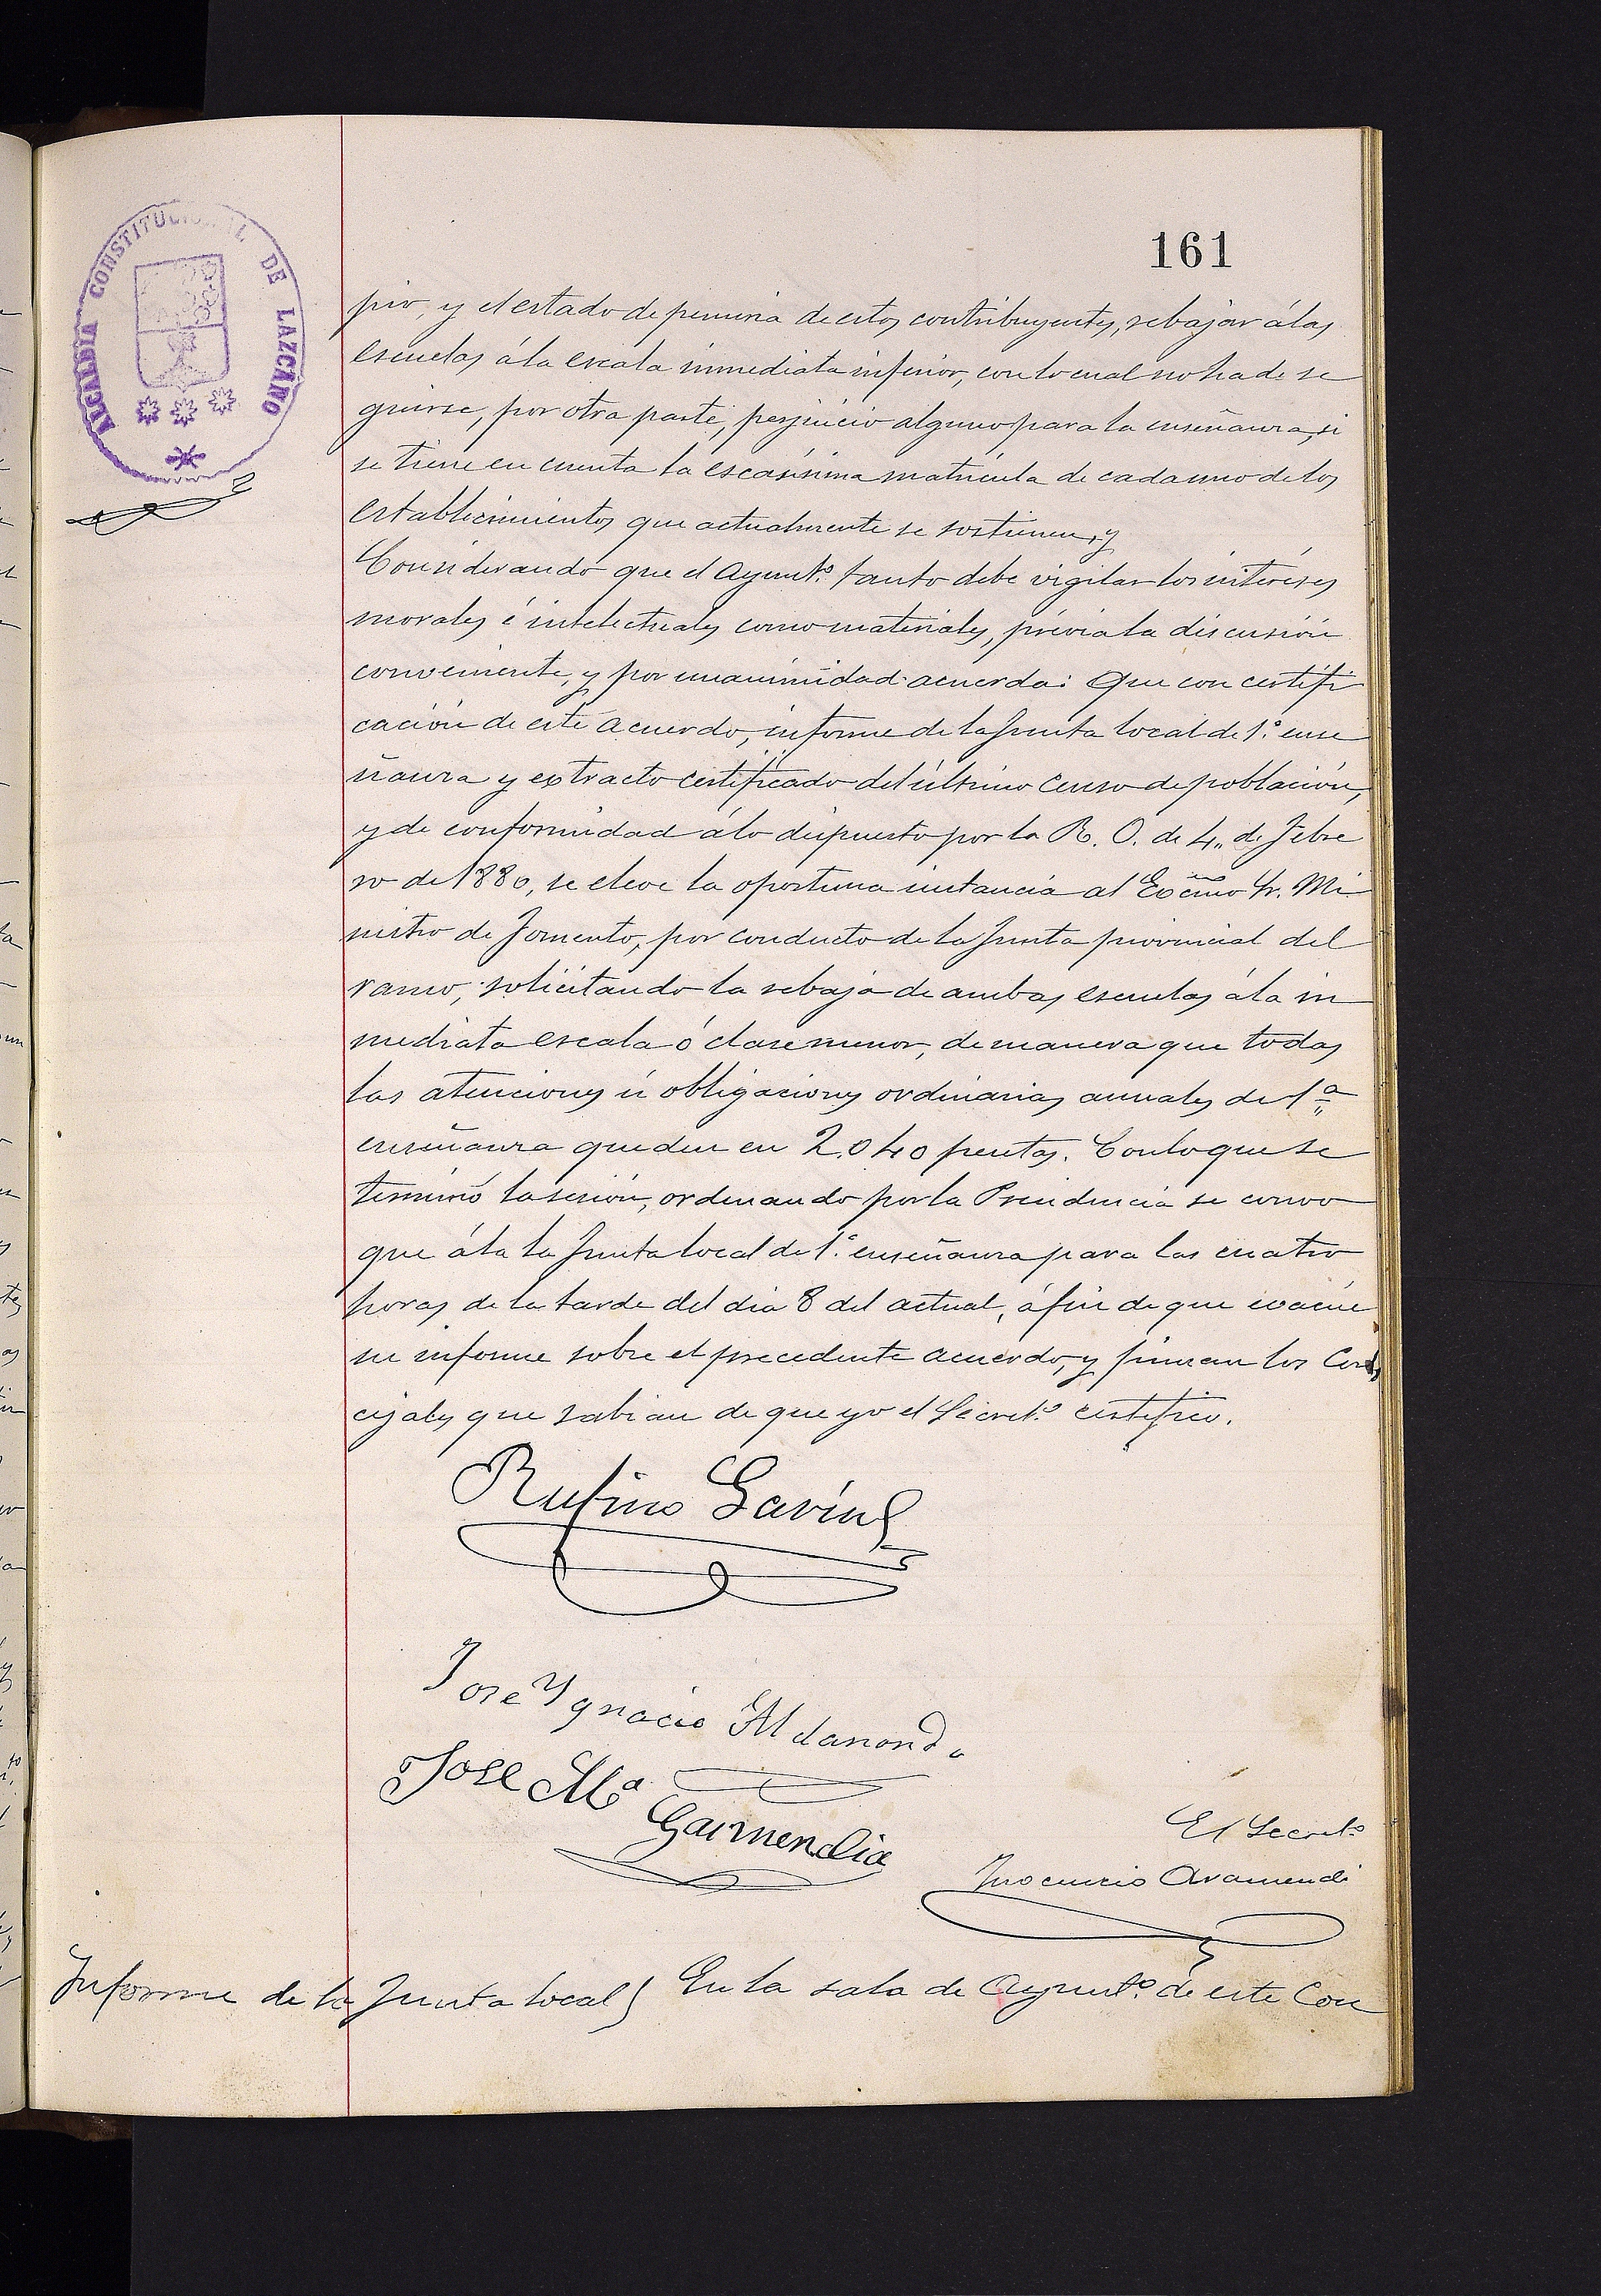 161
ALCALDIA CONSTITUCIONAL DE LAZCANO
pio, y el estado de penuria de estos contribuyentes, rebajar á las
escuelas á la escala inmediata inferior, con lo cual no ha de se
guirse, por otra parte, perjuicio alguno para la enseñanza, si
se tiene en cuenta la escasísima matrícula de cada uno de los
establecimientos que actualmente se sostienen, y
Considerando que el Ayunt.º tanto debe vigilar los intereses
morales é intelectuales como materiales, prévia la discusión
conveniente, y por unanimidad acuerda: Que con certifi
cación de este acuerdo, informe de la Junta local de 1.ª ense
ñanza y extracto certificado del último Censo de población,
y de conformidad á lo dispuesto por la R. O. de 4,, de Febre
ro de 1880, se eleve la oportuna instancia al Excmo Sr. Mi
nistro de Fomento, por conducto de la Junta provincial del
ramo, solicitando la rebaja de ambas escuelas á la in
mediata escala ó clase menor, de manera que todas
las atenciones ú obligaciones ordinarias anuales de 1ª
enseñanza queden en 2.040 pesetas. Con lo que se
terminó la sesión, ordenando por la Presidencia se convo
que á la la Junta local de 1.ª enseñanza para las cuatro
horas de la tarde del dia 8 del actual, á fin de que evacúe
su informe sobre el precedente acuerdo, y firman los Con
cejales que sabian de que yo el Secret.º certifico.
Rufino
Jose Ygnacio Aldanondo
Jose Mª
Garmendia
El Secret.º
Inocencio Aramendi
Informe de la Junta local) En la sala de Ayunt.º de este Con